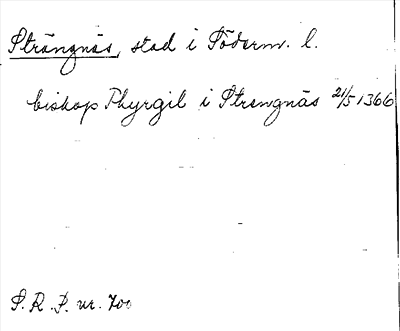 Strängnäs, stad i Söderm. l.
biskop Thyrgil i Strengnäs 21/5 1366
S. R. P. nr. 700